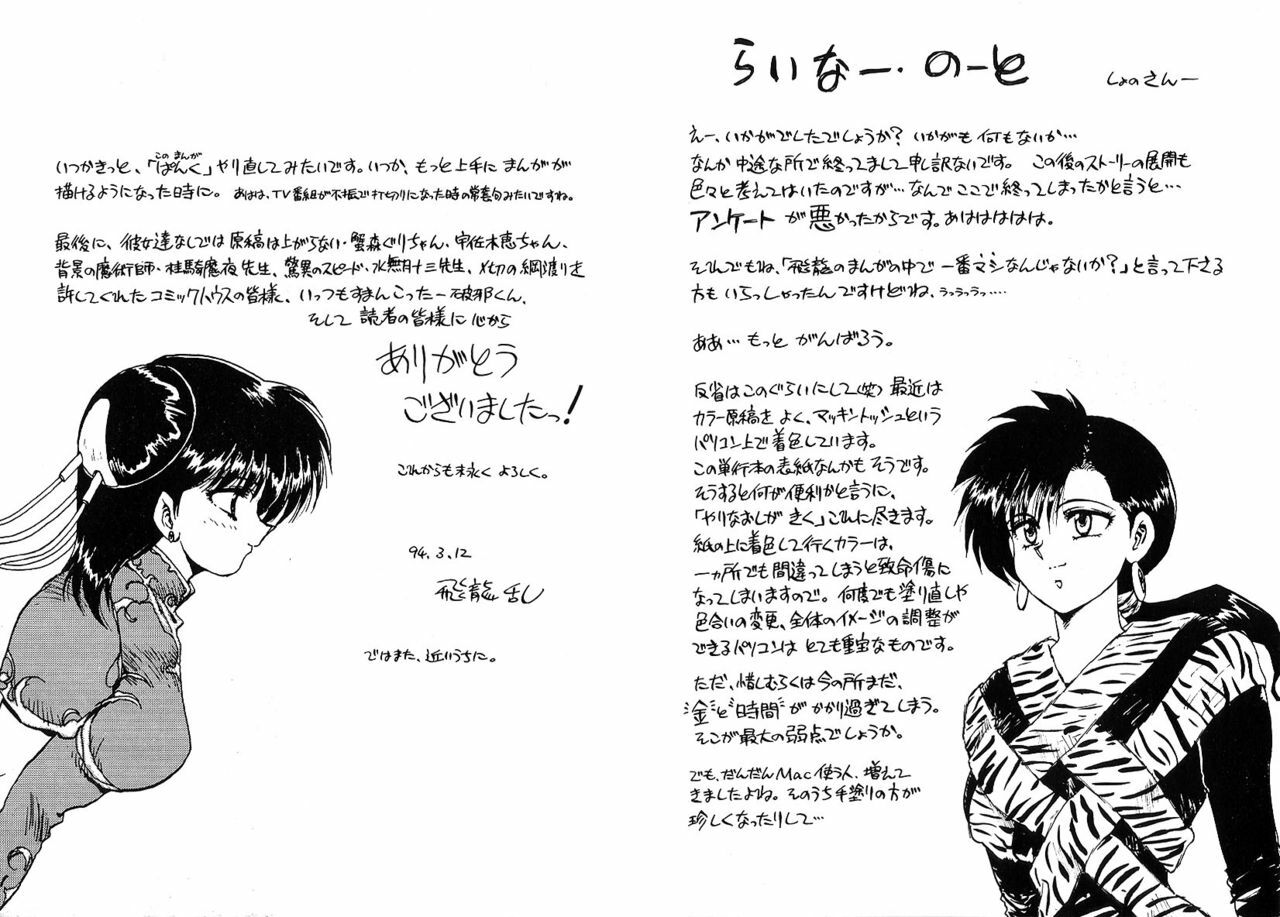 らいなー・のーと
しょのさんー
えー、いかがでしたでしょうか？ いかがも何もないか…
なんか中途な所で終ってまして申し訳ないです。 この後のストーリーの展開も
色々と考えてはいたのですが…なんでここで終ってしまったかと言うと…
アンケートが悪かったからです。あはははははは。
それでもね、「飛龍のまんがの中で一番マシなんじゃないか？」と言って下さる
方もいらっしゃったんですけどね、うっうっうっ‥‥
ああ… もっと がんばろう。
反省はこのぐらいにして(笑) 最近は
カラー原稿を よく、マッキントッシュという
パソコン上で着色しています。
この単行本の表紙なんかも そうです。
そうすると何が便利かと言うに、
「やりなおしが きく」これに尽きます。
紙の上に着色して行くカラーは、
一ヵ所でも間違ってしまうと致命傷に
なってしまいますので。何度でも塗り直しや
色合いの変更、全体のイメージの調整が
できるパソコンは とても重宝なものです。
ただ、惜しむらくは今の所まだ、
"金"と"時間"が かかり過ぎてしまう。
そこが最大の弱点でしょうか。
でも、だんだんMac使う人、増えて
きましたよね。そのうち手塗りの方が
珍しくなったりして…
いつかきっと、「ぱんく」やり直してみたいです。いつか、もっと上手に まんがが
このまんが
描けるようになった時に。 あはは、TV番組が不振で打ち切りになった時の常套句みたいですね。
最後に、彼女達なしでは 原稿は上がらない・蟹森ぐりちゃん、宇佐木恵ちゃん、
背景の魔術師・桂騎魔夜先生、驚異のスピード・水無月十三先生、〆切の綱渡りを
許してくれた コミックハウスの皆様、いっつもすまんこったー破邪くん、
そして 読者の皆様に 心から
ありがとう
ございましたっ！
これからも末永く よろしく。
94.3.12
飛龍 乱
ではまた、近いうちに。